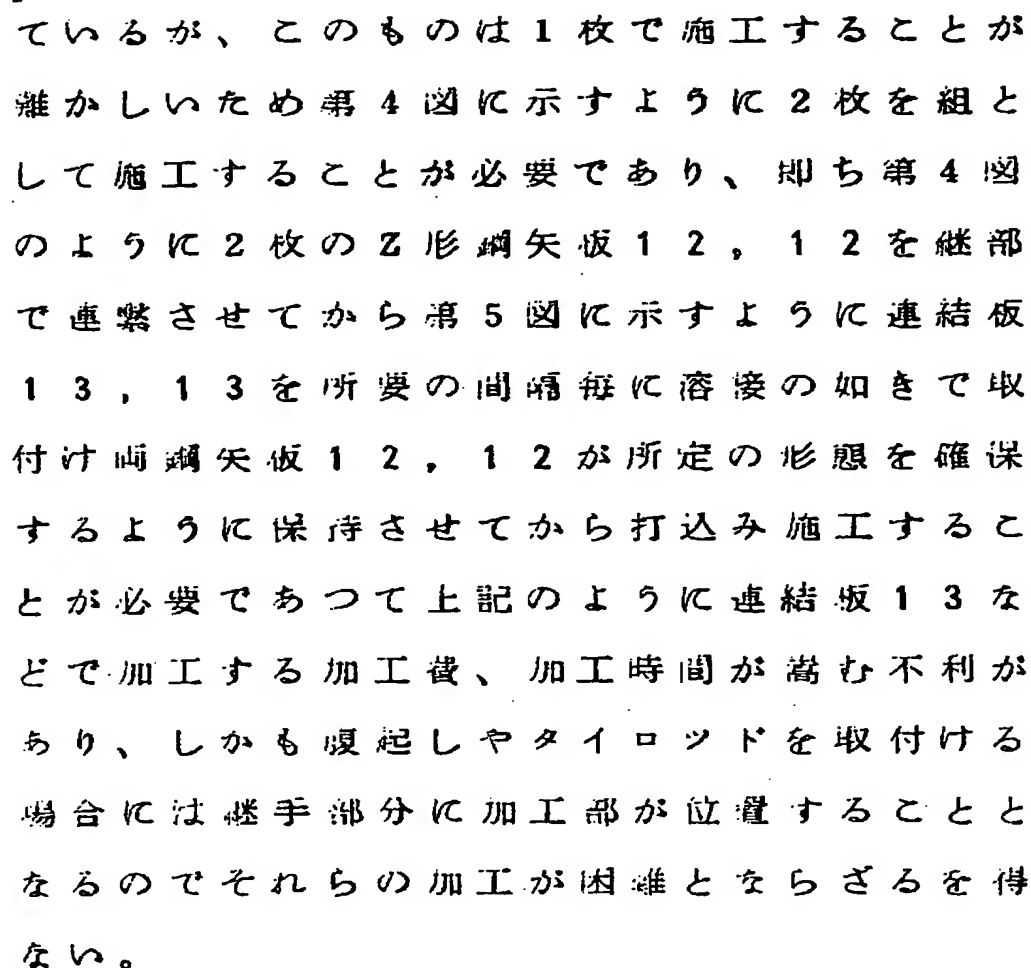 ているが、このものは1枚で施工することが
難かしいため第4図に示すように2枚を組と
して施工することが必要であり、即ち第4図
のように2枚のZ形鋼矢板12,12を継部
で連繋させてから第5図に示すように連結板
13,13を所要の間隔毎に溶接の如きで取
付け両鋼矢板12,12が所定の形態を確保
するように保持させてから打込み施工するこ
とが必要であつて上記のように連結板13な
どで加工する加工費、加工時間が嵩む不利が
あり、しかも腹起しやタイロッドを取付ける
場合には継手部分に加工部が位置することと
なるのでそれらの加工が困難とならざるを得
ない。